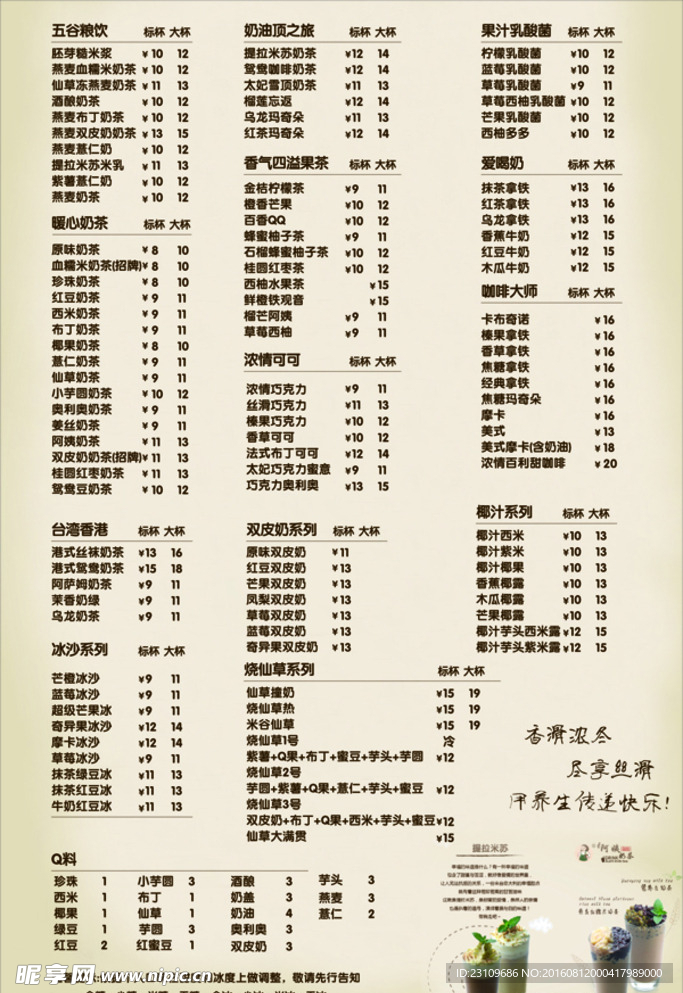 五谷粮饮 标杯 大杯
胚芽糙米浆 ¥10 12
燕麦血糯米奶茶 ¥10 12
仙草冻燕麦奶茶 ¥11 13
酒酿奶茶 ¥10 12
燕麦布丁奶茶 ¥10 12
燕麦双皮奶奶茶 ¥13 15
燕麦薏仁奶 ¥10 12
提拉米苏米乳 ¥11 13
紫薯薏仁奶 ¥10 12
燕麦奶茶 ¥10 12
暖心奶茶 标杯 大杯
原味奶茶 ¥8 10
血糯米奶茶(招牌)¥8 10
珍珠奶茶 ¥8 10
红豆奶茶 ¥9 11
西米奶茶 ¥9 11
布丁奶茶 ¥9 11
椰果奶茶 ¥8 10
薏仁奶茶 ¥9 11
仙草奶茶 ¥9 11
小芋圆奶茶 ¥10 12
奥利奥奶茶 ¥9 11
姜丝奶茶 ¥9 11
阿姨奶茶 ¥11 13
双皮奶奶茶(招牌)¥11 13
桂圆红枣奶茶 ¥11 13
鸳鸯豆奶茶 ¥10 12
台湾香港 标杯 大杯
港式丝袜奶茶 ¥13 16
港式鸳鸯奶茶 ¥15 18
阿萨姆奶茶 ¥9 11
茉香奶绿 ¥9 11
乌龙奶茶 ¥9 11
冰沙系列 标杯 大杯
芒橙冰沙 ¥9 11
蓝莓冰沙 ¥9 11
超级芒果冰 ¥9 11
奇异果冰沙 ¥12 14
摩卡冰沙 ¥12 14
草莓冰沙 ¥9 11
抹茶绿豆冰 ¥11 13
抹茶红豆冰 ¥11 13
牛奶红豆冰 ¥11 13
奶油顶之旅 标杯 大杯
提拉米苏奶茶 ¥12 14
鸳鸯咖啡奶茶 ¥12 14
太妃雪顶奶茶 ¥11 13
榴莲忘返 ¥12 14
乌龙玛奇朵 ¥11 13
红茶玛奇朵 ¥12 14
香气四溢果茶 标杯 大杯
金桔柠檬茶 ¥9 11
橙香芒果 ¥10 12
百香QQ ¥10 12
蜂蜜柚子茶 ¥9 11
石榴蜂蜜柚子茶 ¥10 12
桂圆红枣茶 ¥10 12
西柚水果茶 ¥15
鲜橙铁观音 ¥15
榴芒阿姨 ¥9 11
草莓西柚 ¥9 11
浓情可可 标杯 大杯
浓情巧克力 ¥9 11
丝滑巧克力 ¥11 13
榛果巧克力 ¥10 12
香草可可 ¥10 12
法式布丁可可 ¥12 14
太妃巧克力蜜意 ¥9 11
巧克力奥利奥 ¥13 15
双皮奶系列 标杯 大杯
原味双皮奶 ¥11
红豆双皮奶 ¥13
芒果双皮奶 ¥13
凤梨双皮奶 ¥13
草莓双皮奶 ¥13
蓝莓双皮奶 ¥13
奇异果双皮奶 ¥13
烧仙草系列 标杯 大杯
仙草撞奶 ¥15 19
烧仙草热 ¥15 19
米谷仙草 ¥15 19
烧仙草1号 冷
紫薯+Q果+布丁+蜜豆+芋头+芋圆 ¥12
烧仙草2号
芋圆+紫薯+Q果+薏仁+芋头+蜜豆 ¥12
烧仙草3号
双皮奶+布丁+Q果+西米+芋头+蜜豆¥12
仙草大满贯 ¥15
果汁乳酸菌 标杯 大杯
柠檬乳酸菌 ¥10 12
蓝莓乳酸菌 ¥10 12
草莓乳酸菌 ¥9 11
草莓西柚乳酸菌 ¥10 12
芒果乳酸菌 ¥10 12
西柚多多 ¥10 12
爱喝奶 标杯 大杯
抹茶拿铁 ¥13 16
红茶拿铁 ¥13 16
乌龙拿铁 ¥13 16
香蕉牛奶 ¥12 15
红豆牛奶 ¥12 15
木瓜牛奶 ¥12 15
咖啡大师 标杯 大杯
卡布奇诺 ¥16
榛果拿铁 ¥16
香草拿铁 ¥16
焦糖拿铁 ¥16
经典拿铁 ¥16
焦糖玛奇朵 ¥16
摩卡 ¥16
美式 ¥13
美式摩卡(含奶油) ¥18
浓情百利甜咖啡 ¥20
椰汁系列 标杯 大杯
椰汁西米 ¥10 13
椰汁紫米 ¥10 13
椰汁椰果 ¥10 13
香蕉椰露 ¥10 13
木瓜椰露 ¥10 13
芒果椰露 ¥10 13
椰汁芋头西米露 ¥12 15
椰汁芋头紫米露 ¥12 15
香滑浓尽
尽享丝滑
用养生传递快乐!
Q料
珍珠 1 小芋圆 3 酒酿 3 芋头 3
西米 1 布丁 1 奶盖 3 燕麦 3
椰果 1 仙草 1 奶油 4 薏仁 2
绿豆 1 芋圆 3 奥利奥 3
红豆 2 红蜜豆 1 双皮奶 3
提拉米苏
阿姨奶茶
冰度上做调整，敬请先行告知
昵享网 www.nipic.cn
ID:23109686 NO:20160812000417989000